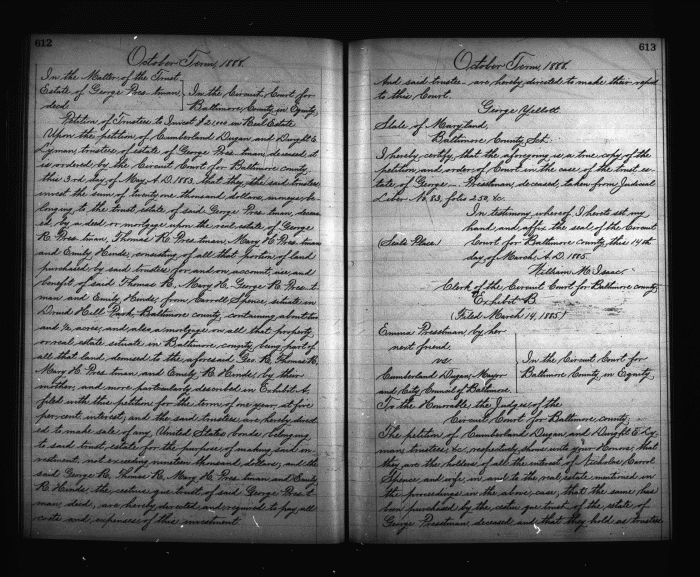 612
October Term, 1888.
In the Matter of the Trust
Estate of George Pres tman, In the Circuit Court for
decd Baltimore County, in Equity,
Petition of Trustees to Invest $21,000 in Real Estate
Upon the petition of Cumberland Dugan and Dwight E.
Lyman, trustees of estate of George Pres tman, deceased, it
is ordered by the Circuit Court for Baltimore county
this 3rd day of May, A.D. 1883, that they, the said trustees
invest the sum of twenty one thousand dollars, moneys be
longing to the trust estate of said George Pres tman, deceas
ed, by a deed or mortgage upon the real estate of George
R. Pres tman, Thomas R. Pres tman, Mary H. Pres tman
and Emily Hinds, consisting of all that portion of land
purchased by said trustees for and on account, use, and
benefit of said Thomas R., Mary H., George R. Pres t
man and Emily Hinds, from Carroll Spence, situate in
Druid Hill Park, Baltimore county, containing about two
and ½ acres, and also a mortgage on all that property
or real estate situate in Baltimore county being part of
all that land, demised to the aforesaid Geo. R., Thomas R.,
Mary H. Pres tman and Emily R. Hinds by their
mother, and more particularly described in Exhibit A,
filed with this petition for the term of one year, at five
per cent. interest, and the said trustees are hereby direct
ed to make sale of any United States bonds belonging
to said trust estate for the purpose of making said in
vestment, not exceeding nineteen thousand dollars, and the
said George R., Thomas R., Mary H. Pres tman and Emily
R. Hinds, the cestuis que trust of said George Pres t
man, decd, are hereby directed and required to pay all
costs and expenses of this investment.
613
October Term, 1888.
And said trustees are hereby directed to make their report
to this Court.
George Yellott
State of Maryland,
Baltimore County, Sct:
I hereby certify, that the aforegoing is a true copy of the
petition and order of Court in the case of the trust es-
tate of George Prestman, deceased, taken from Judicial
Liber No. 83, folio 250, &c.
In testimony whereof, I hereto set my
hand and affix the seal of the Circuit
(Seal's Place) Court for Baltimore county, this 14th
day of March, A.D. 1885.
William M. Isaac
Clerk of the Circuit Court for Baltimore county,
Exhibit B
(Filed March 14, 1885)
Emma Prestman, by her
next friend
vs. In the Circuit Court for
Cumberland Dugan, Mayor Baltimore County, in Equity
and City Council of Baltimore
To the Honorable, the Judges of the
Circuit Court for Baltimore county,
The petition of Cumberland Dugan, and Dwight E. Ly
man, trustees, &c., respectfully shows unto your Honors, that
they are the holders of all the interest of Nicholas Carrol
Spence and wife in and to the real estate mentioned in
the proceedings in the above case, that the same has
been purchased by the cestui que trust of the estate of
George Prestman, deceased, and that they hold as trustees